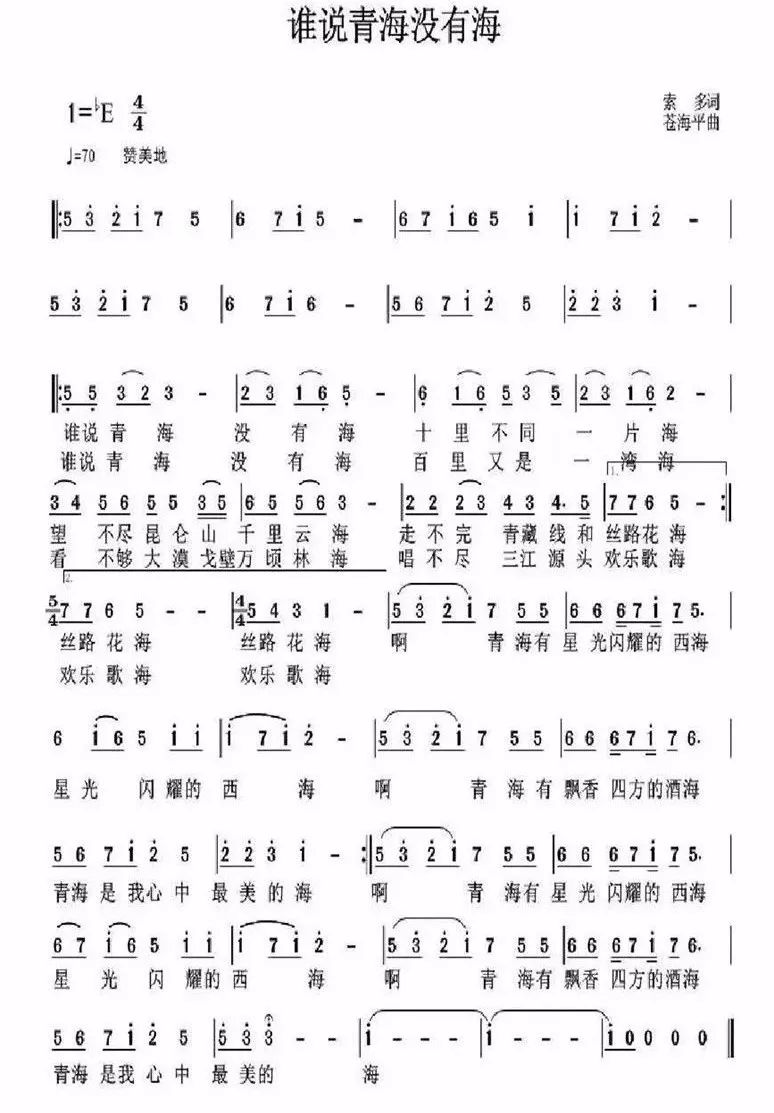 谁说青海没有海
1=♭E 4/4
索 多词
苍海平曲
♩=70 赞美地
5 3 2 1 7 5 | 6 7 1 5 - | 6 7 1 6 5 1 | 1 7 1 2 - |
5 3 2 1 7 5 | 6 7 1 6 - | 5 6 7 1 2 5 | 2 2 3 1 - |
5 5 3 2 3 - | 2 3 1 6 5 - | 6 1 6 5 3 5 | 2 3 1 6 2 - |
谁说青海 没有海 十里不同 一片海
谁说青海 没有海 百里又是 一湾海
1.
3 4 5 6 5 5 3 5 | 6 5 5 6 5 - | 2 2 2 3 4 3 4. 5 | 7 7 6 5 - :
望 不尽昆仑山 千里云海 走不完 青藏线和 丝路花海
看 不够大漠戈壁万顷林海 唱不尽 三江源头 欢乐歌海
2.
5/4 7 7 6 5 - - | 4/4 5 4 3 1 - | 5 3 2 1 7 5 5 | 6 6 6 7 1 7 5. |
丝路花海 丝路花海 啊 青海有 星光闪耀的西海
欢乐歌海 欢乐歌海
6 1 6 5 1 1 | 1 7 1 2 - | 5 3 2 1 7 5 5 | 6 6 6 7 1 7 6. |
星光 闪耀的西 海 啊 青海有 飘香四方的酒海
5 6 7 1 2 5 | 2 2 3 1 - : 5 3 2 1 7 5 5 | 6 6 6 7 1 7 5. |
青海是我心中 最美的海 啊 青海有 星光闪耀的西海
6 7 1 6 5 1 1 | 1 7 1 2 - | 5 3 2 1 7 5 5 | 6 6 6 7 1 7 6. |
星光 闪耀的西 海 啊 青海有 飘香四方的酒海
5 6 7 1 2 5 | 5 3 3 - - - | 1 - - - | 1 - - - | 1 0 0 0 0
青海是我心中 最美的 海